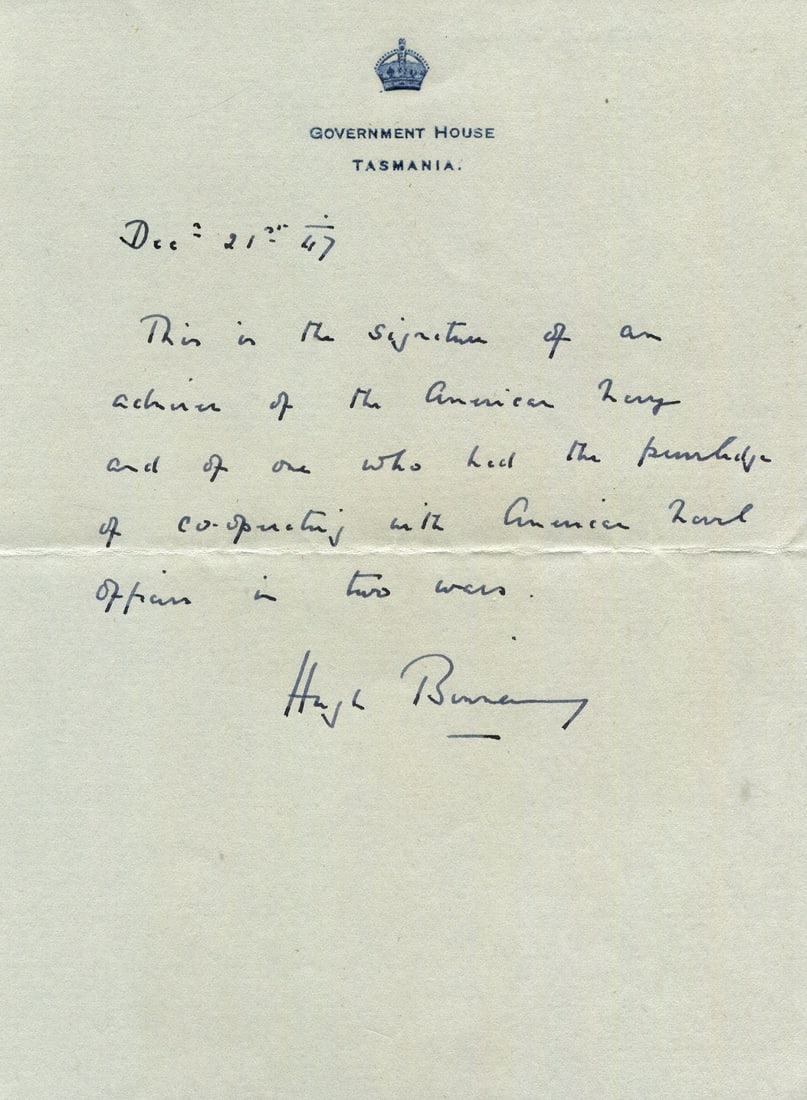 GOVERNMENT HOUSE
TASMANIA.
Decr 21st 47
This is the signature of an
admirer of the American Navy
and of one who had the priviledge
of co-operating with American Naval
officers in two wars.
Hugh Binney